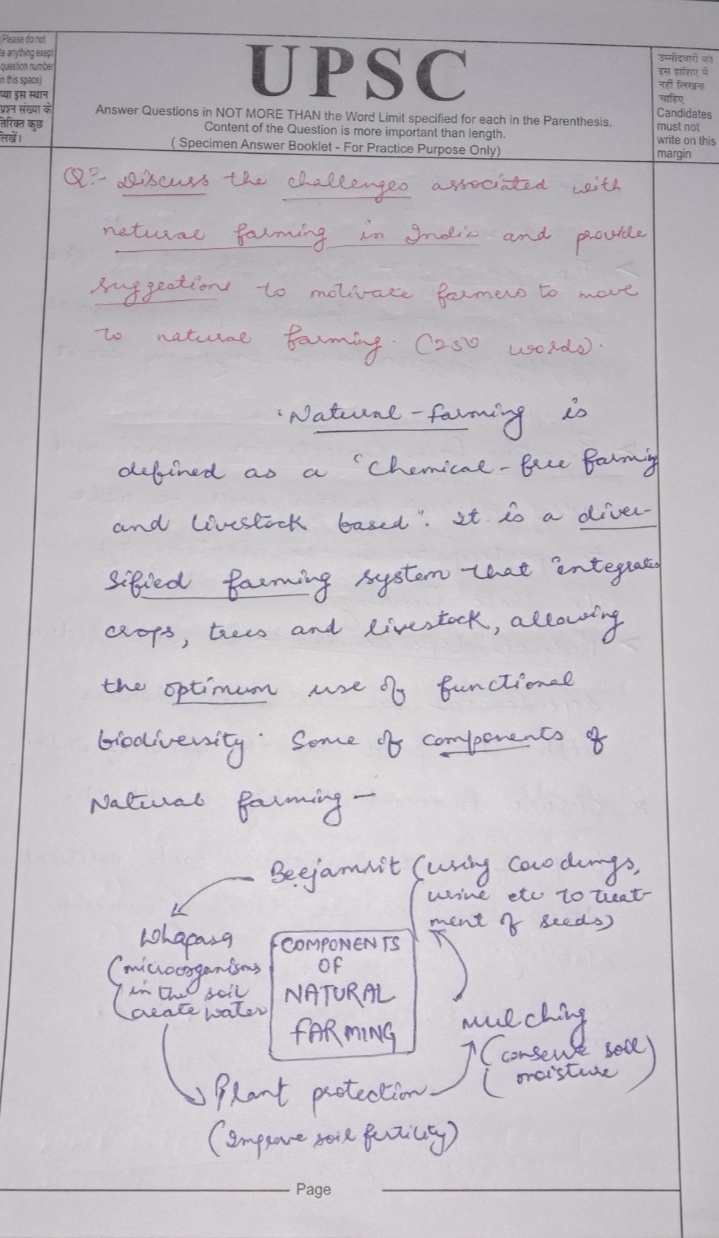 Please do not
te anything exept
question number
in this space)
प्या इस स्थान
प्रश्न संख्या के
तिरिक्त कुछ
लिखें।
UPSC
Answer Questions in NOT MORE THAN the Word Limit specified for each in the Parenthesis.
Content of the Question is more important than length.
( Specimen Answer Booklet - For Practice Purpose Only)
उम्मीदवारों को
इस हाशिए में
नहीं लिखना
चाहिए
Candidates
must not
write on this
margin
Q:- Discuss the challenges associated with
natural farming in India and provide
suggestions to motivate farmers to move
to natural farming. (250 words).
'Natural-farming is
defined as a "Chemical-free farming
and livestock based". It is a diver-
sified farming system that integrates
crops, trees and livestock, allowing
the optimum use of functional
biodiversity. Some of components of
Natural farming -
Beejamrit (using Cow dungs,
urine etc to treat-
ment of seeds)
Whapasa
(microorganisms
in the soil
create water
COMPONENTS
OF
NATURAL
FARMING
Mulching
(conserve soil
moisture)
Plant protection
(Improve soil fertility)
Page